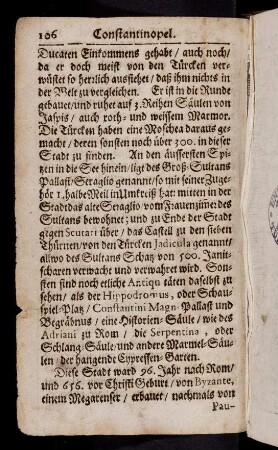 106 Constantinopel.
Ducaten Einkommens gehabt / auch noch /
da er doch meist von den Türcken ver-
wüstet so herrlich aussiehet / daß ihm nichts in
der Welt zu vergleichen. Er ist in die Runde
gebauet / und ruhet auf 3. Reihen Säulen von
Jaspis / auch roth- und weissem Marmor.
Die Türcken haben eine Moschea daraus ge-
mache / deren sonsten noch über 300. in dieser
Stadt zu finden. An den äussersten Spi-
tzen in die See hinein / ligt des Groß-Sultans
Pallast / Seraglio genannt / so mit seiner Zuge-
hör 1. halbe Meil in Umkreiß hat: mitten in der
Stadt das alte Seraglio vom Frauenzimer: des
Sultans bewohnet; und zu Ende der Stadt
gegen Scutari über / das Castell zu den sieben
Thürnen / von den Türcken Jadicula genannt /
allwo des Sultans Schatz von 500. Janit-
scharen verwacht und verwahret wird. Son-
sten sind noch etliche Antiquitäten daselbst zu
sehen / als der Hippodromus, oder Schau-
spiel-Platz / Constantini Magn. Pallast und
Begräbnus / eine Historien-Säule / wie des
Adriani zu Rom / die Serpentina, oder
Schlang-Säule / und andere Marmel-Säu-
len / der hangende Cypressen-Garten.
Diese Stadt ward 96. Jahr nach Rom /
und 656. vor Christi Geburt / von Byzante,
einem Megarenser / erbauet / nachmals von
Pau-